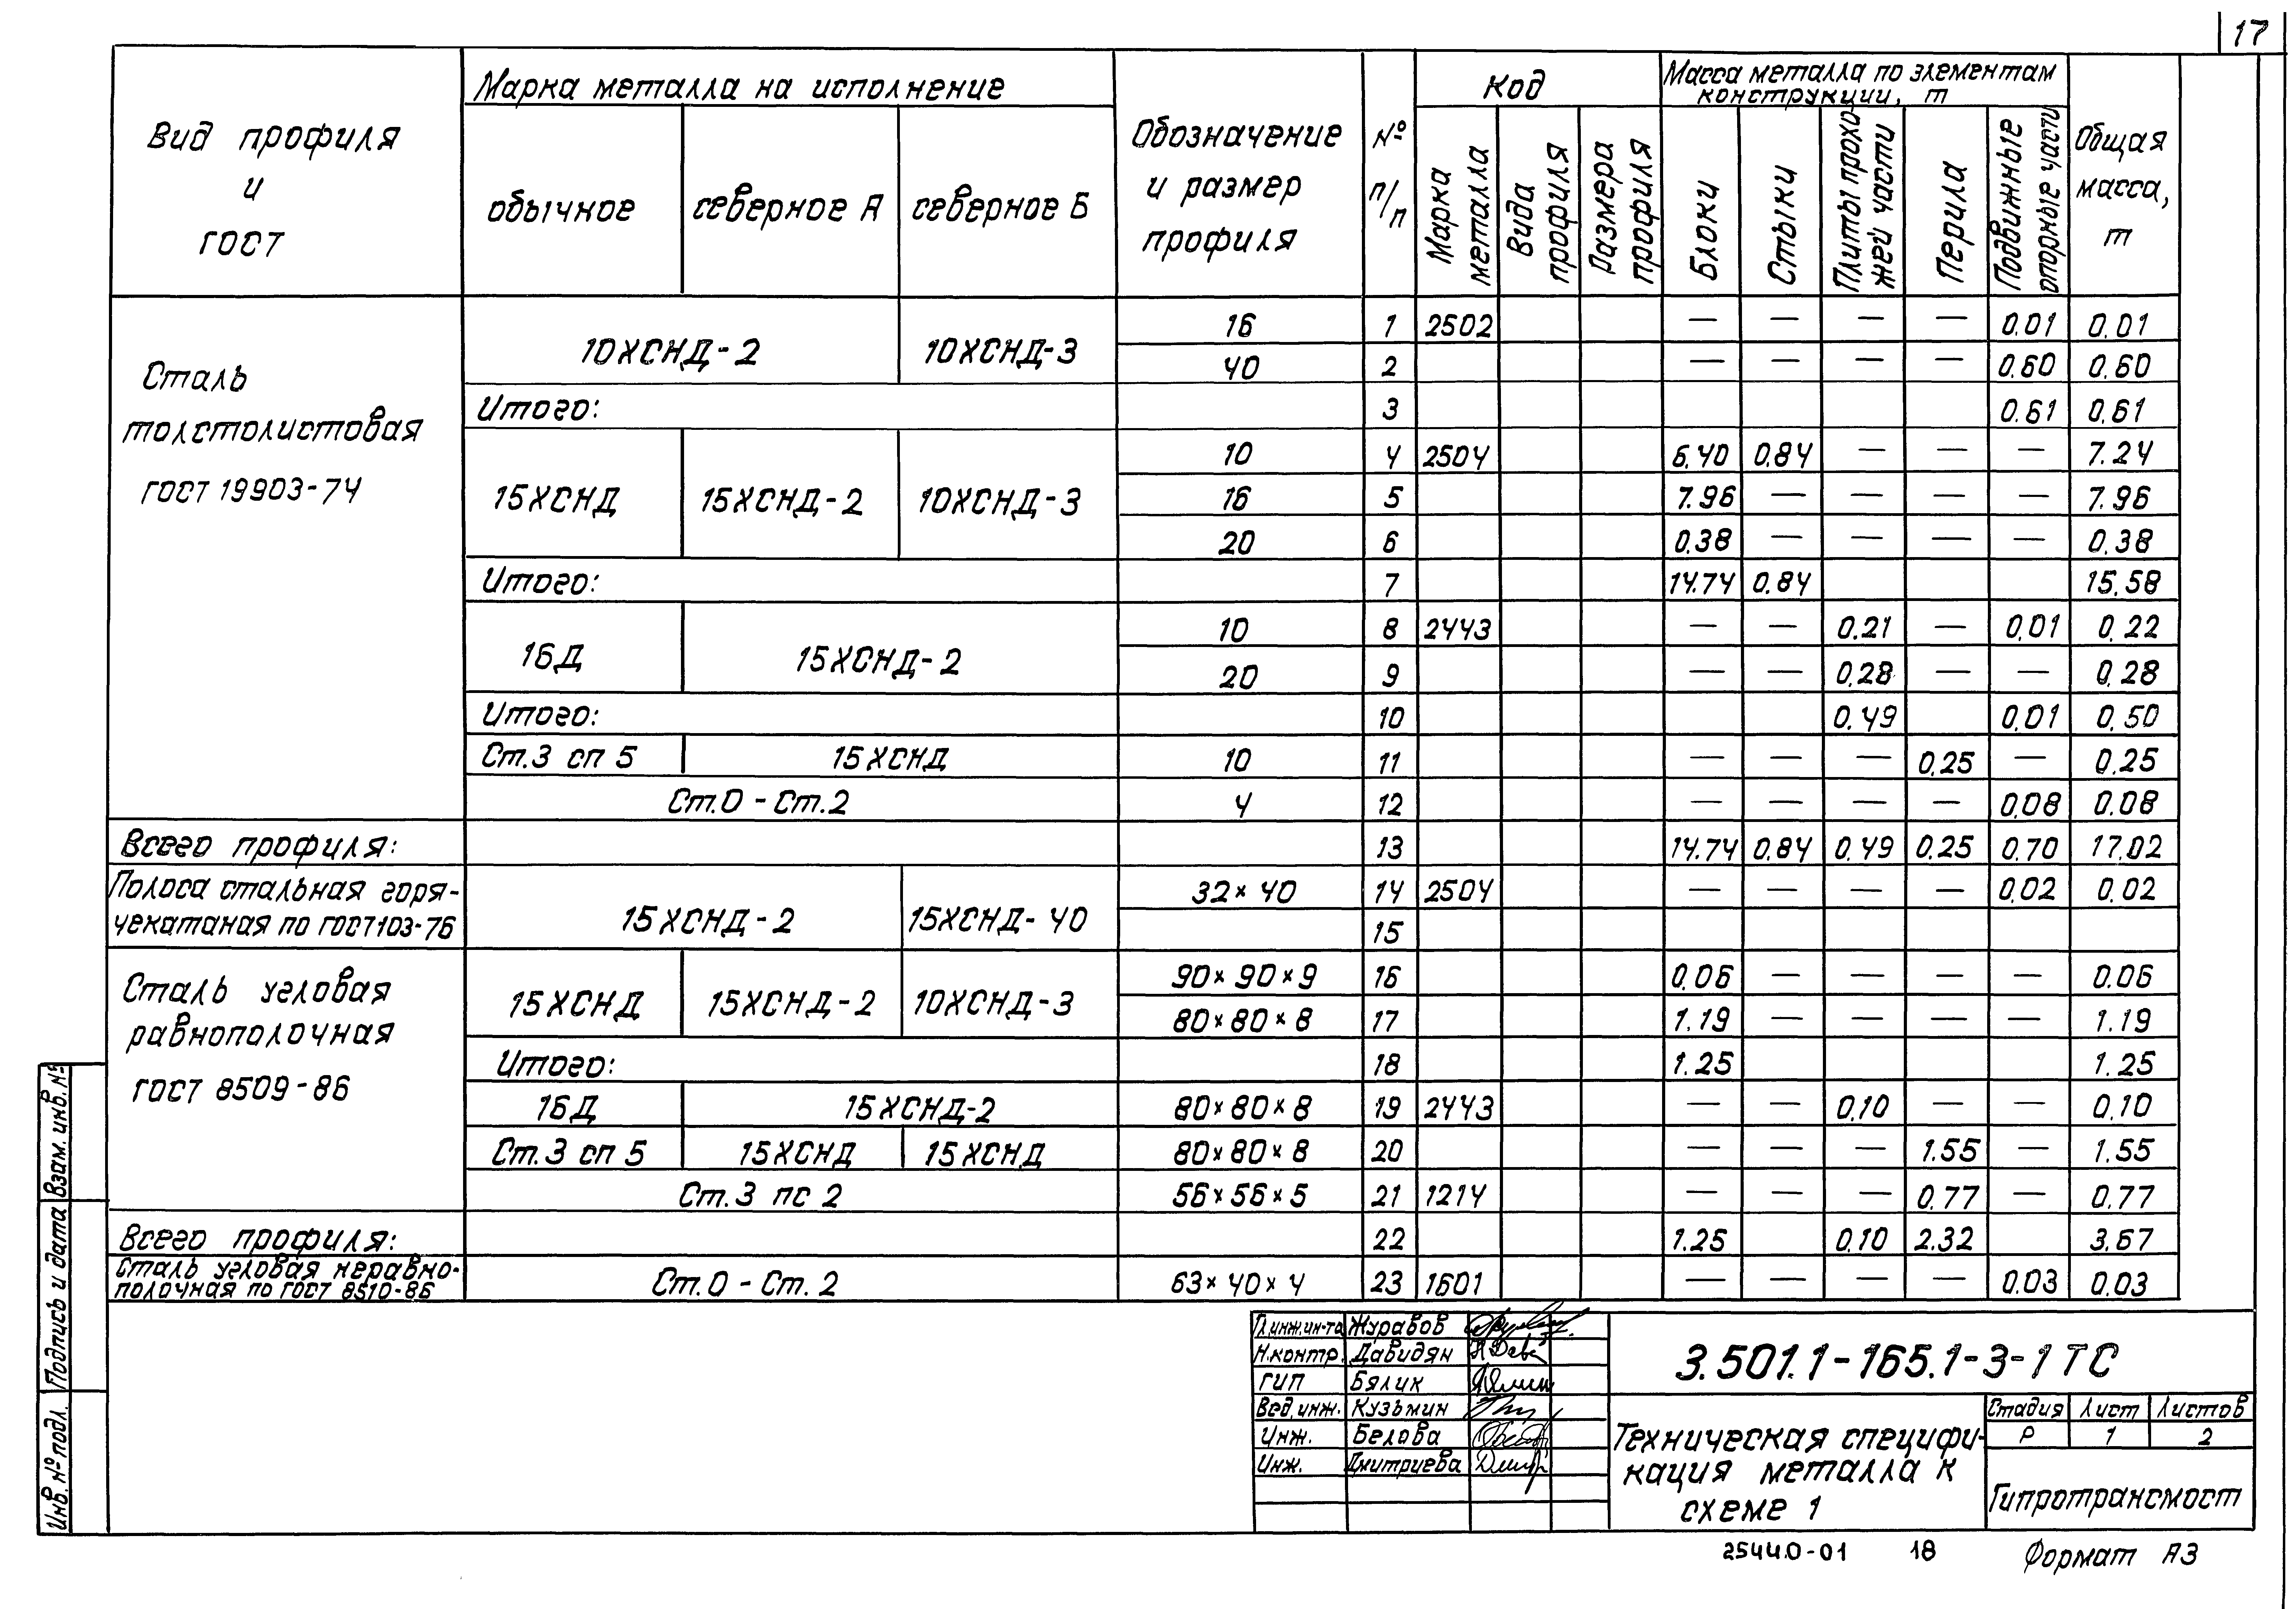 17
Вид профиля и ГОСТ
Марка металла на исполнение
обычное
северное А
северное Б
Обозначение и размер профиля
№ п/п
Код
Марка металла
Вида профиля
Размера профиля
Масса металла по элементам конструкции, т
Блоки
Стыки
Плиты проезжей части
Перила
Подвижные опорные части
Общая масса, т
Сталь толстолистовая ГОСТ 19903-74
10ХСНД-2 10ХСНД-3
16 1 2502 — — — — 0.01 0.01
40 2 — — — — 0.60 0.60
Итого: 3 0.61 0.61
15ХСНД 15ХСНД-2 10ХСНД-3
10 4 2504 6.40 0.84 — — — 7.24
16 5 7.96 — — — — 7.96
20 6 0.38 — — — — 0.38
Итого: 7 14.74 0.84 15.58
16Д 15ХСНД-2
10 8 2443 — — 0.21 — 0.01 0.22
20 9 — — 0.28 — — 0.28
Итого: 10 0.49 0.01 0.50
Ст.3 сп 5 15ХСНД 10 11 — — — 0.25 — 0.25
Ст.0 - Ст.2 4 12 — — — — 0.08 0.08
Всего профиля: 13 14.74 0.84 0.49 0.25 0.70 17.02
Полоса стальная горя-
чекатаная по ГОСТ 103-76
15ХСНД-2 15ХСНД-40
32×40 14 2504 — — — — 0.02 0.02
15
Сталь угловая равнополочная ГОСТ 8509-86
15ХСНД 15ХСНД-2 10ХСНД-3
90×90×9 16 0.06 — — — — 0.06
80×80×8 17 1.19 — — — — 1.19
Итого: 18 1.25 1.25
16Д 15ХСНД-2 80×80×8 19 2443 — — 0.10 — — 0.10
Ст.3 сп 5 15ХСНД 15ХСНД 80×80×8 20 — — — 1.55 — 1.55
Ст.3 пс 2 56×56×5 21 1214 — — — 0.77 — 0.77
Всего профиля: 22 1.25 0.10 2.32 3.67
Сталь угловая неравно-
полочная по ГОСТ 8510-86
Ст.0 - Ст.2 63×40×4 23 1601 — — — — 0.03 0.03
Взам. инв. №
Подпись и дата
Инв. № подл.
Гл.инж.ин-та Журавов
Н.контр. Давидян
ГИП Бялик
Вед. инж. Кузьмин
Инж. Белова
Инж. Дмитриева
3.501.1-165.1-3-1 ТС
Техническая специфи-
кация металла к
схеме 1
Стадия Лист Листов
Р 1 2
Гипротрансмост
25440-01 18
Формат А3